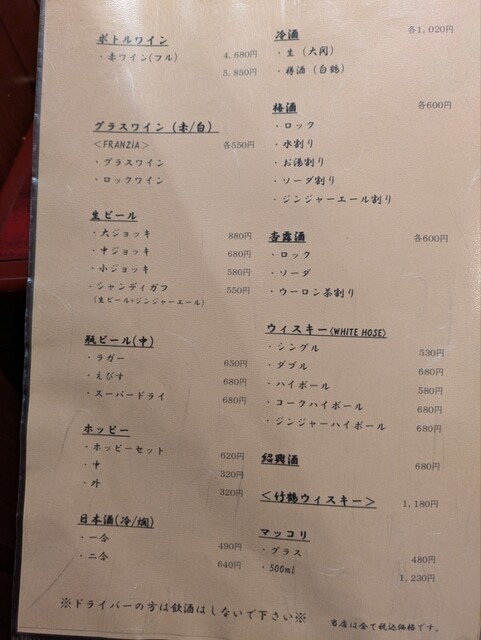 ボトルワイン
・赤ワイン(フル) 4,680円
5,850円
グラスワイン (赤/白)
<FRANZIA> 各550円
・グラスワイン
・ロックワイン
生ビール
・大ジョッキ 880円
・中ジョッキ 680円
・小ジョッキ 580円
・シャンディガフ 550円
(生ビール+ジンジャーエール)
瓶ビール(中)
・ラガー 650円
・えびす 680円
・スーパードライ 680円
ホッピー
・ホッピーセット 620円
・中 320円
・外 320円
日本酒(冷/燗)
・一合 490円
・二合 640円
冷酒 各1,020円
・生 (大関)
・樽酒 (白鶴)
梅酒 各600円
・ロック
・水割り
・お湯割り
・ソーダ割り
・ジンジャーエール割り
杏露酒 各600円
・ロック
・ソーダ
・ウーロン茶割り
ウィスキー<WHITE HOSE>
・シングル 530円
・ダブル 680円
・ハイボール 580円
・コークハイボール 680円
・ジンジャーハイボール 680円
紹興酒 680円
<竹鶴ウィスキー> 1,180円
マッコリ
・グラス 480円
・500ml 1,230円
※ドライバーの方は飲酒はしないで下さい※
当店は全て税込価格です。